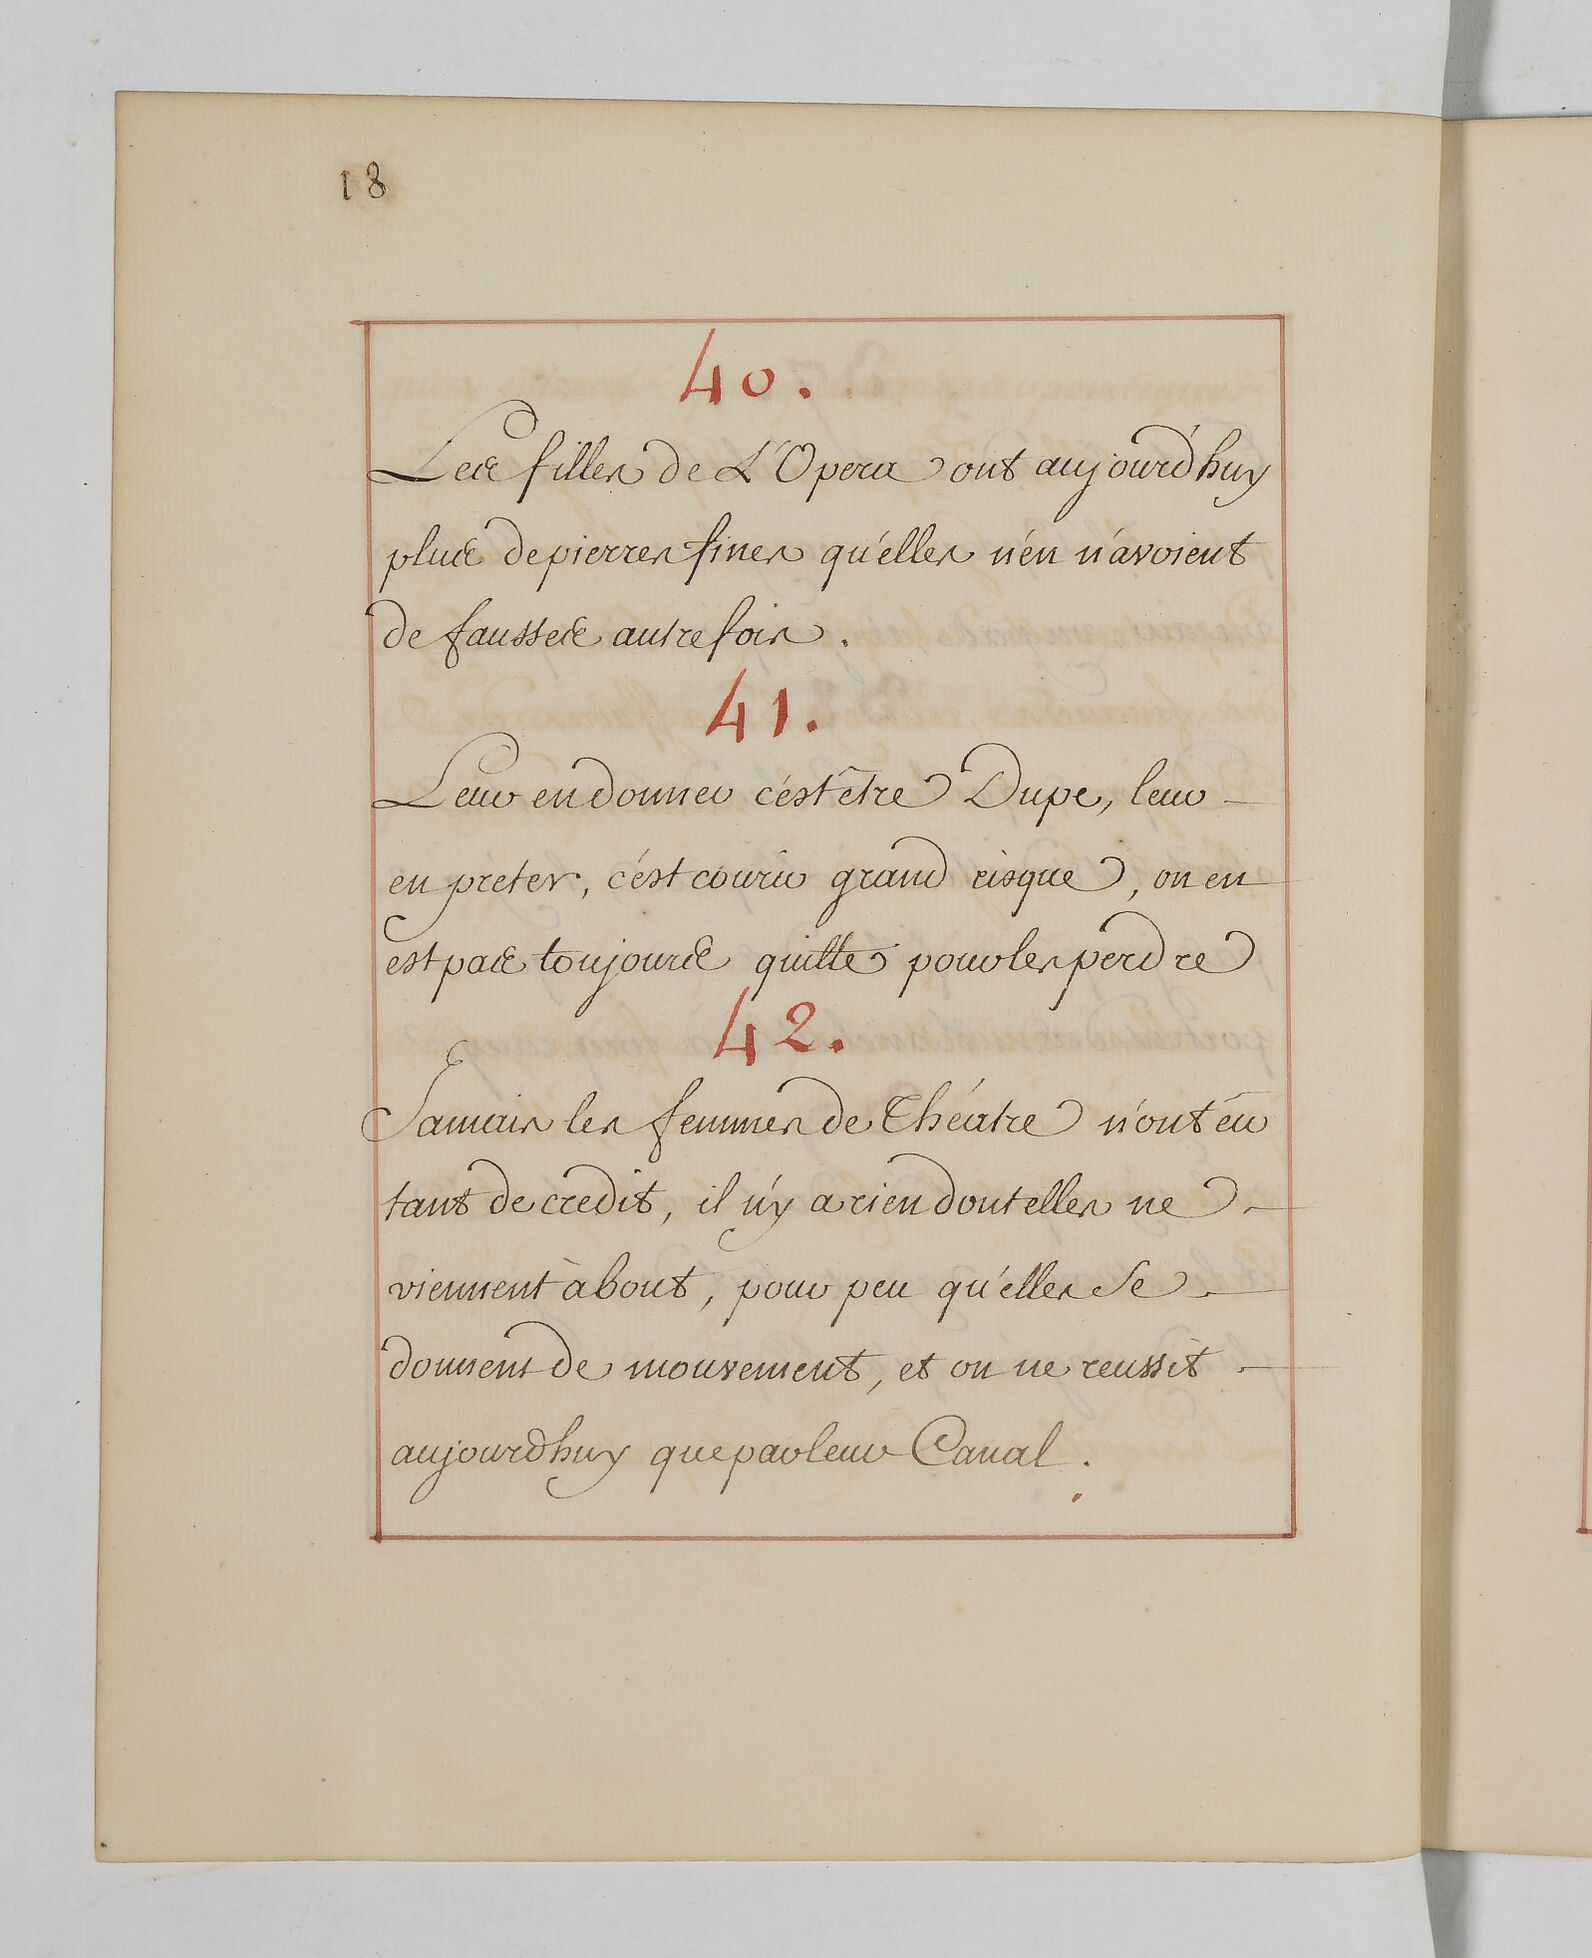 18
40.
Les filles de L'Opera ont aujourd'huy
plus de pierres fines qu'elles n'en n'avoient
de fausses autrefois.
41.
Leur en donner c'est être Dupe, leur
en preter, c'est courir grand risque, on en
est pas toujours quitte pour les perdre
42.
Jamais les femmes de Théatre n'ont eu
tant de credit, il n'y a rien dont elles ne
viennent à bout, pour peu qu'elles se
donnent de mouvement, et on ne reussit
aujourdhuy que par leur Canal.